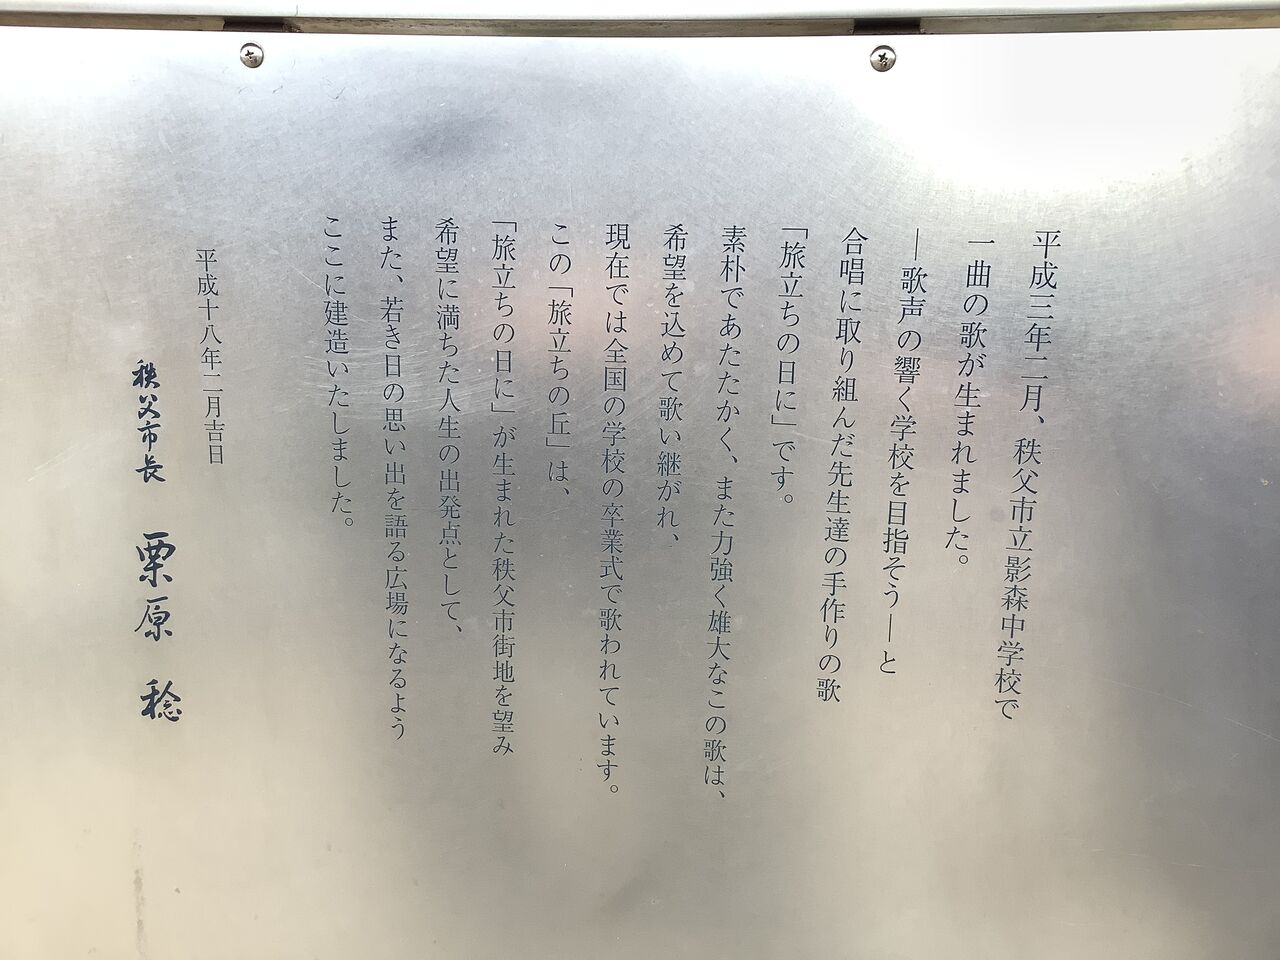 平成三年二月、秩父市立影森中学校で
一曲の歌が生まれました。
―歌声の響く学校を目指そう―と
合唱に取り組んだ先生達の手作りの歌
「旅立ちの日に」です。
素朴であたたかく、また力強く雄大なこの歌は、
希望を込めて歌い継がれ、
現在では全国の学校の卒業式で歌われています。
この「旅立ちの丘」は、
「旅立ちの日に」が生まれた秩父市街地を望み
希望に満ちた人生の出発点として、
また、若き日の思い出を語る広場になるよう
ここに建造いたしました。
平成十八年二月吉日
秩父市長 栗原 稔